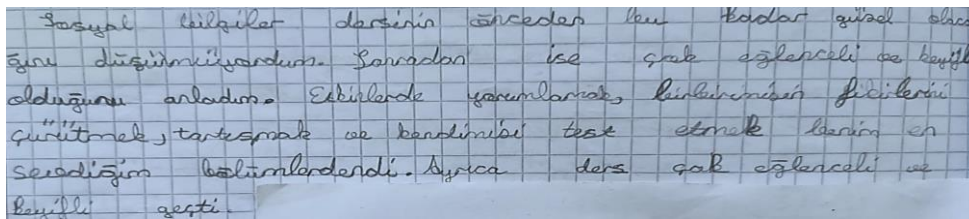 Sosyal bilgiler dersinin önceden bu kadar güzel olaca
ğını düşünmüyordum. Sonradan ise çok eğlenceli ve keyifli
olduğunu anladım. Etkinlerde yorumlamak, birbirimizin fikilerini
çürütmek, tartışmak ve kendimizi test etmek benim en
sevdiğim bölümlerdendi. Ayrıca ders çok eğlenceli ve
keyifli geçti.